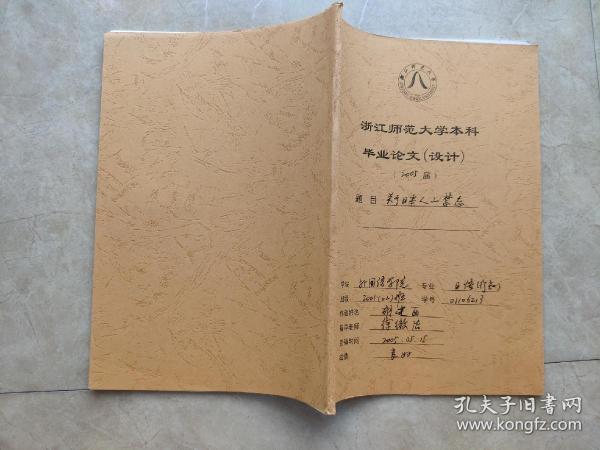 浙江师范大学本科
毕业论文(设计)
(2005 届)
题 目 关于日本人
学院 外国语学院 专业 日语
班级 2001 班 学号 01106213
作者姓名
指导老师 徐微洁
定稿时间 2005.05.18
成绩
孔夫子旧书网
www.kongfz.com